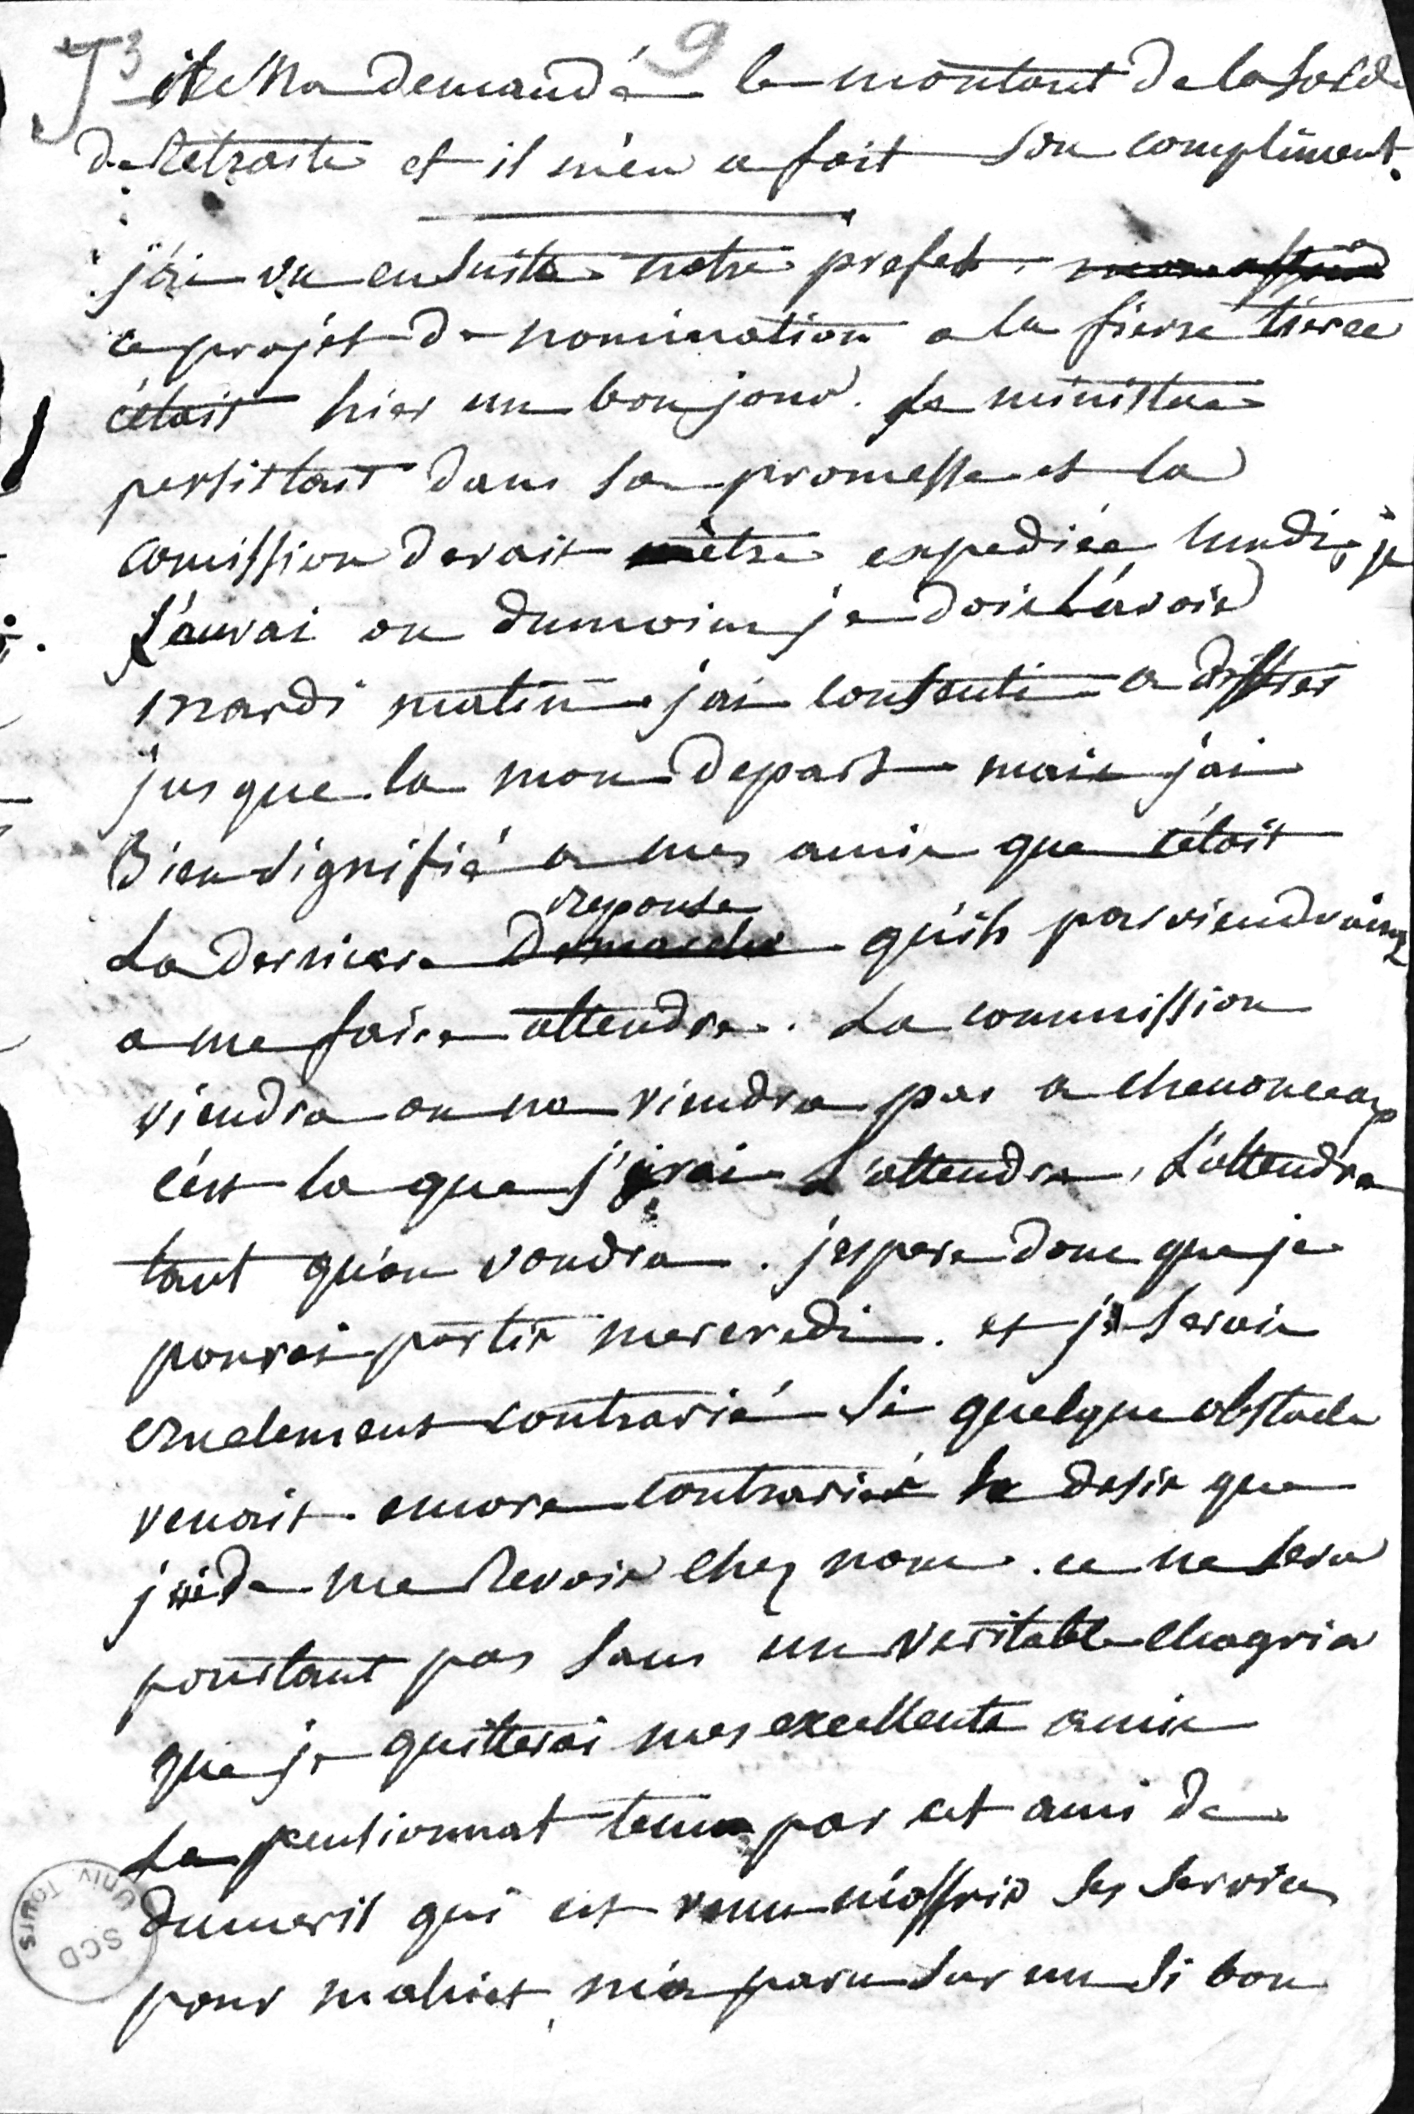 J3 9
il m'a demandé le montant de la solde
de Retraite et il m'en a fait son compliment.
j'ai vu ensuite notre prefet.
ce projet de nomination a la fierre tierce
c'était hier un bon jour. Le ministre
persistait dans sa promesse et la
comission devait être expediée lundi, je
l'aurai ou dumoins je dois l'avoir
mardi matin. j'ai consenti a differer
jusque la mon depart mais j'ai
Bien signifié a mes amis que c'étoit
La derniere reponse qu'ils parviendraient
a me faire attendre. La commission
viendra ou ne viendra pas a chenonceaux
c'est la que j'irai L'attendre, L'attendre
tant qu'on voudra. j'espere donc que je
pourai partir mercredi. et je serais
cruelement contrarié si quelque obstacle
venait encore contrarier le desir que
j'ai de me Revoir chez nous. ce ne sera
pourtant pas sans un veritable chagrin
que je quitterai mes excellents amis
Le pensionnat tenu par cet ami de
dumeril qui est venu m'offrir ses services
pour mahiet, m'a paru sur un si bon
SCD Univ Tours